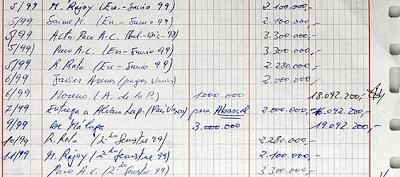 5/99 M. Rajoy (En-Junio 99) 2.100.000,-
5/99 Jaime M. (En-Junio 99) 2.100.000,-
5/99 Acta. Paco A.C. 98) 3.300.000
5/99 Paco A.C. (En-Junio 99) 3.300.000
5/99 R. Rato (En-Junio 99) 2.280.000,-
6/99 Javier Arenas (pagos varios) 2.000.000,-
6/99 Moreno (A. de la P.) 1.000.000 18.092.200,-
7/99 Entrega a Alvaro Lap. (País Vasco) para Abascal 2.000.000,- 16.092.200,-
9/99 De Málaga 3.000.000 19.092.200,-
10/99 R. Rato (2º Semestre 99) 2.280.000,-
11/99 M. Rajoy (2º Semestre 99) 2.100.000,-
Paco A.C. (2º Semestre 99) 3.300.000